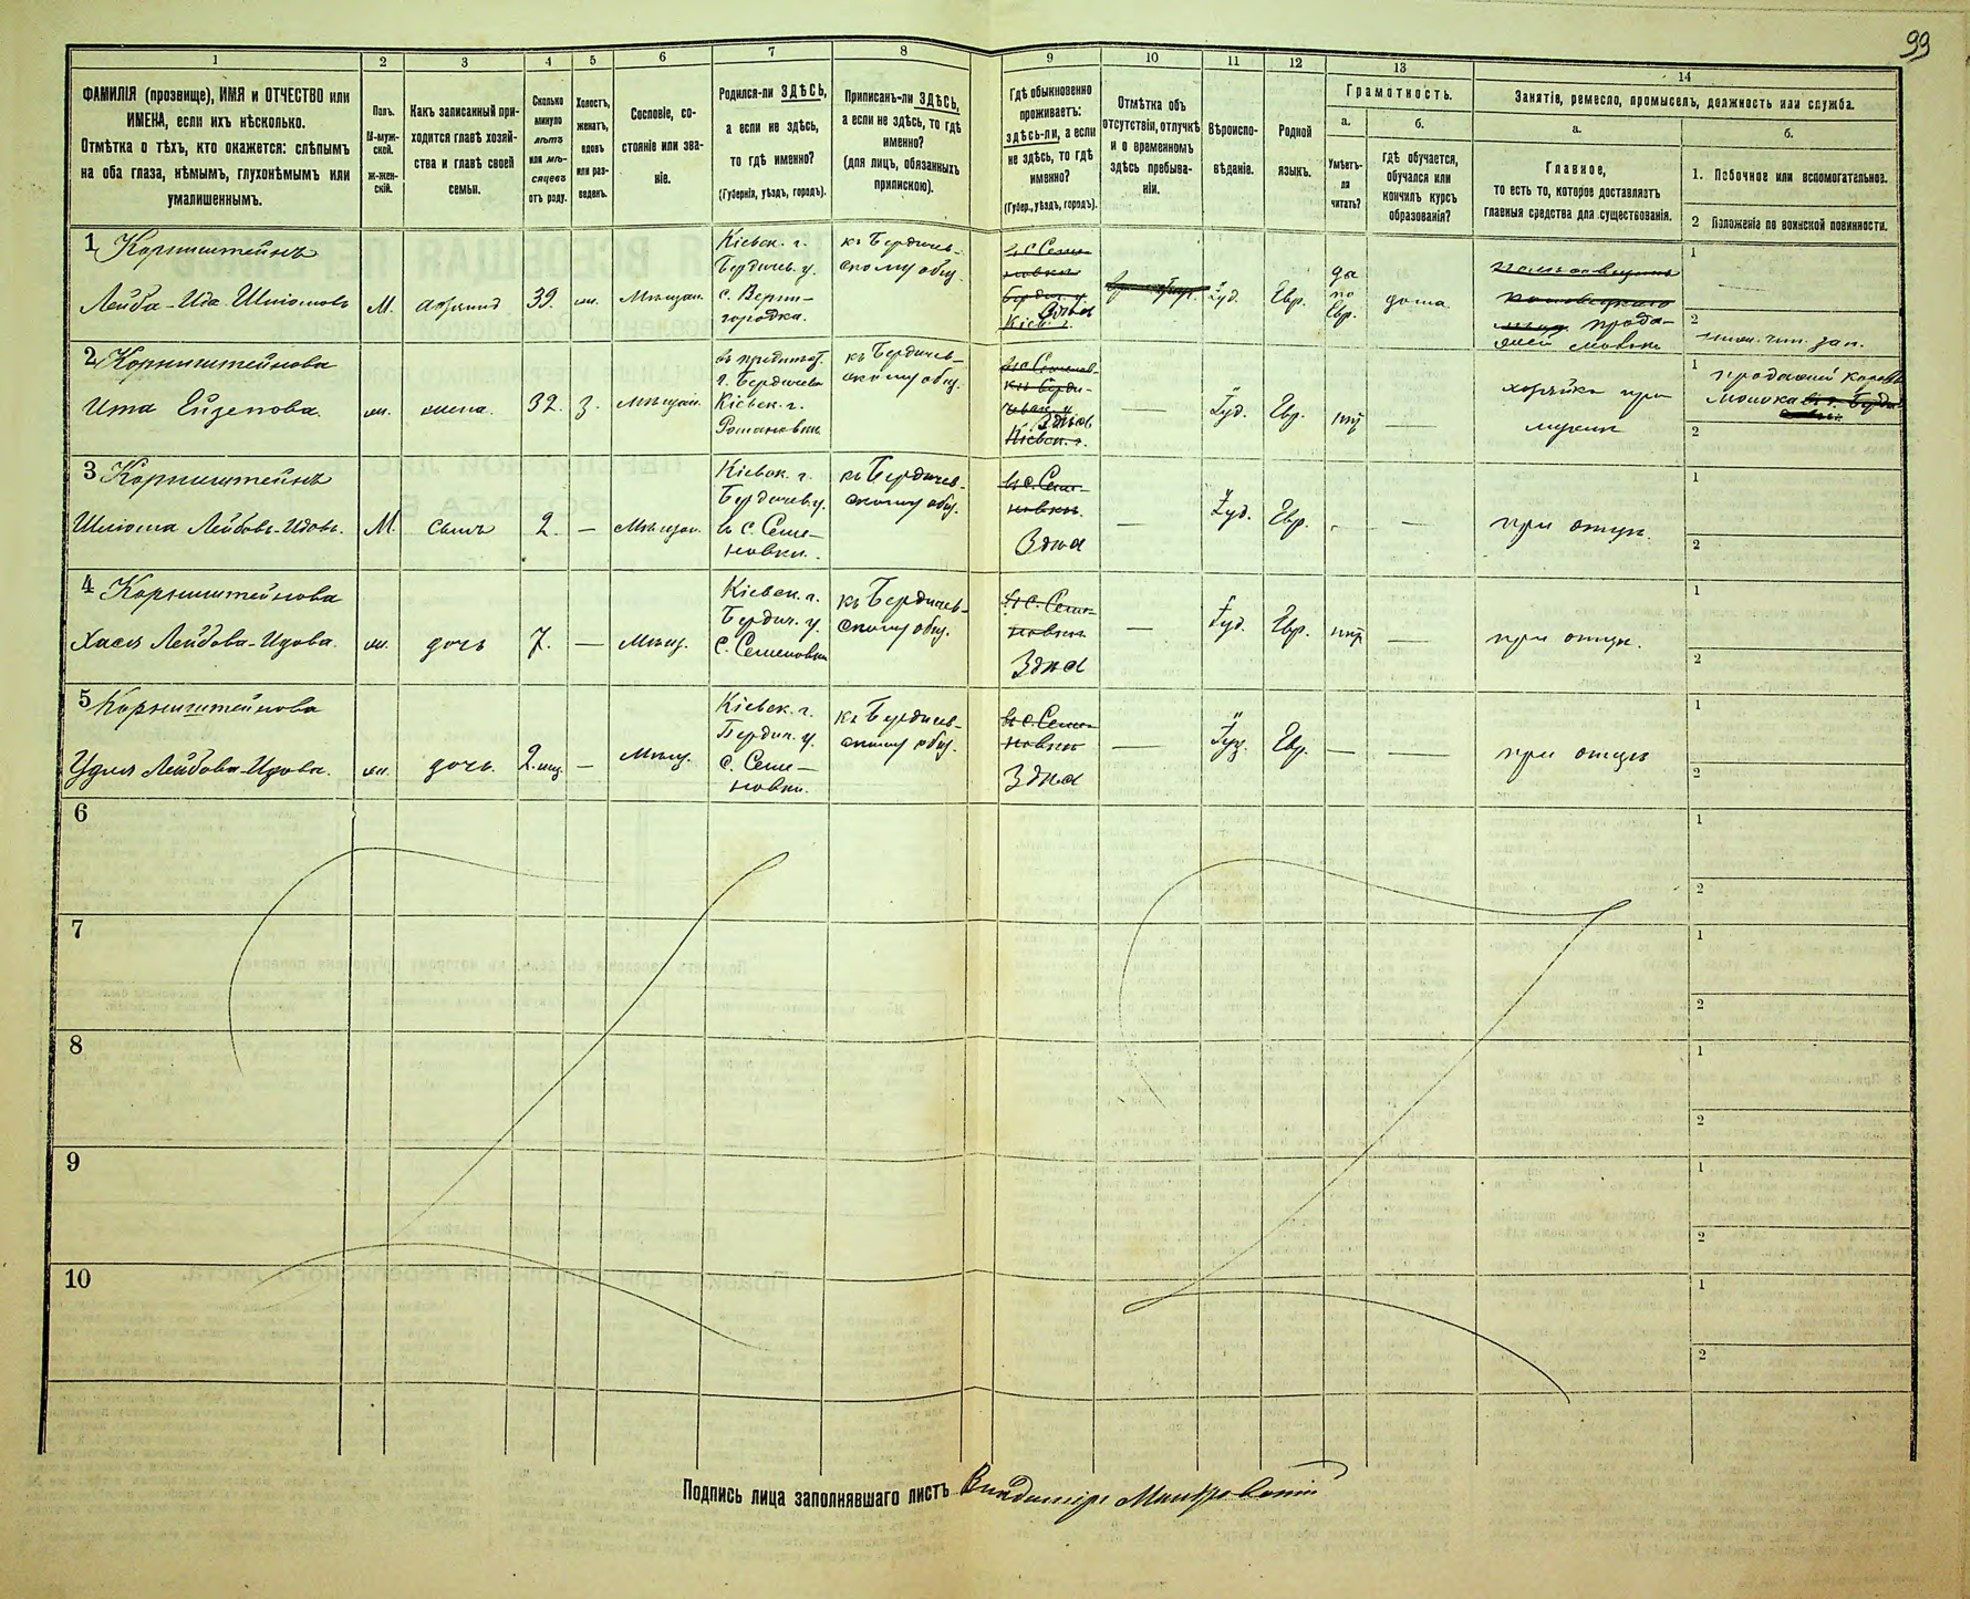 99
1 2 3 4 5 6 7 8 9 10 11 12 13 14
ФАМИЛІЯ (прозвище), ИМЯ и ОТЧЕСТВО или
ИМЕНА, если ихъ нѣсколько.
Отмѣтка о тѣхъ, кто окажется: слѣпымъ
на оба глаза, нѣмымъ, глухонѣмымъ или
умалишеннымъ.
Полъ.
М-муж-
ской.
ж-жен-
скій.
Какъ записанный при-
ходится главѣ хозяй-
ства и главѣ своей
семьи.
Сколько
минуло
лѣтъ
или мѣ-
сяцевъ
отъ роду.
Холостъ,
женатъ,
вдовъ
или раз-
веденъ.
Сословіе, со-
стояніе или зва-
ніе.
Родился-ли ЗДѢСЬ,
а если не здѣсь,
то гдѣ именно?
(Губернія, уѣздъ, городъ).
Приписанъ-ли ЗДѢСЬ,
а если не здѣсь, то гдѣ
именно?
(для лицъ, обязанныхъ
припискою).
Гдѣ обыкновенно
проживаетъ:
здѣсь-ли, а если
не здѣсь, то гдѣ
именно?
(Губер., уѣздъ, городъ).
Отмѣтка объ
отсутствіи, отлучкѣ
и о временномъ
здѣсь пребыва-
ніи.
Вѣроиспо-
вѣданіе.
Родной
языкъ.
Грамотность.
а.
Умѣетъ-
ли
читать?
б.
Гдѣ обучается,
обучался или
кончилъ курсъ
образованія?
Занятіе, ремесло, промыселъ, должность или служба.
а.
Главное,
то есть то, которое доставляетъ
главныя средства для существованія.
б.
1. Побочное или вспомогательное.
2 Положеніе по воинской повинности.
1 Корнштейнъ
Лейба-Ида Шліомовъ
М.
39.
жен.
Мѣщан.
Кіевск. г.
Бердич. у.
с. Верхи-
городка.
къ Бердичев-
скому общ.
Здѣсь
Іуд.
Евр.
да
по
Евр.
дома
прода-
1
2
2 Корнштейнова
Ита Ейзепова.
жен.
жена.
32.
З.
Мѣщан.
г. Бердичева
Кіевск. г.
Романовки
къ Бердичев-
скому общ.
Здѣсь
—
Іуд.
Евр.
нѣт
—
хозяйка при
мужѣ
1
2
3 Корнштейнъ
Шліома Лейбовъ-Идовъ.
М.
сынъ
2.
—
Мѣщан.
Кіевск. г.
Бердичев. у.
въ с. Семе-
новки.
къ Бердичев-
скому общ.
Здѣсь
—
Іуд.
Евр.
—
—
при отцѣ.
1
2
4 Корнштейнова
Хася Лейбова-Идова
жен.
дочь
7.
—
Мѣщ.
Кіевск. г.
Бердич. у.
с. Семеновки
къ Бердичев-
скому общ.
Здѣсь
—
Іуд.
Евр.
нѣт
—
при отцѣ.
1
2
5 Корнштейнова
Удля Лейбова-Идова.
жен.
дочь.
2. мѣс.
—
Мѣщ.
Кіевск. г.
Бердич. у.
с. Семе-
новки.
къ Бердичев-
скому общ.
Здѣсь
—
Іуд.
Евр.
—
—
при отцѣ
1
2
6
1
2
7
1
2
8
1
2
9
1
2
10
1
2
Подпись лица заполнявшаго листъ Владиміръ